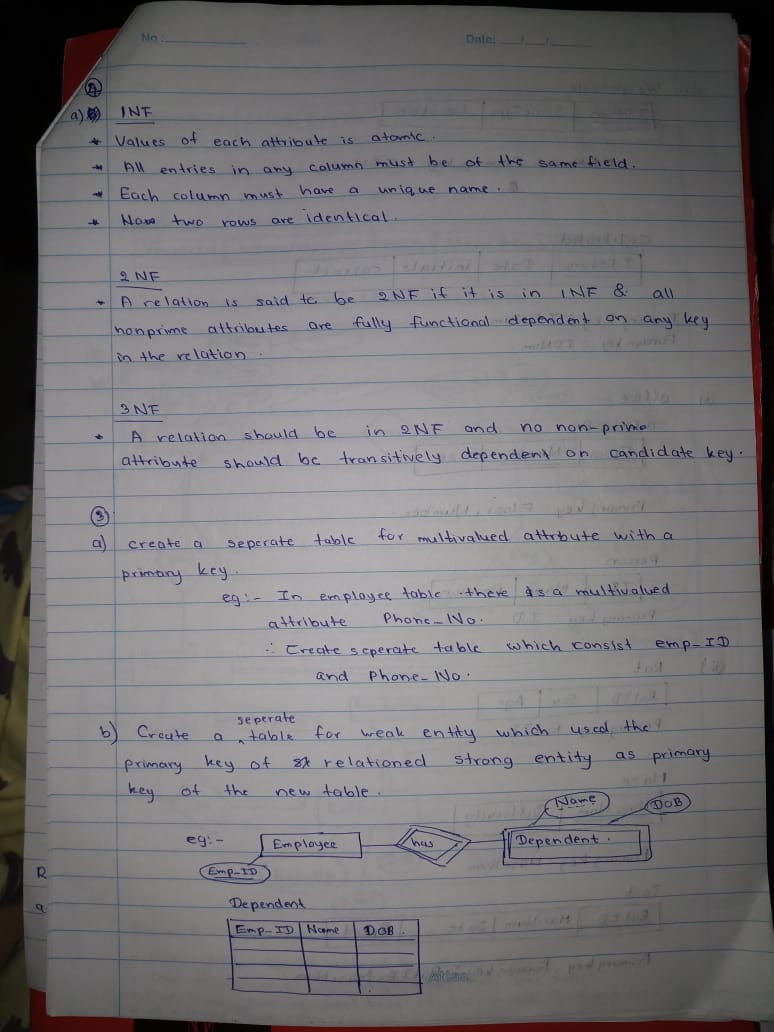 No: Date: / /
4
a) 1NF
* Values of each attribute is atomic.
* All entries in any column must be of the same field.
* Each column must have a unique name.
* two rows are identical.
2NF
* A relation is said to be 2NF if it is in 1NF & all
nonprime attributes are fully functional dependent on any key
in the relation.
3NF
* A relation should be in 2NF and no non-prime
attribute should be transitively dependent on candidate key.
3
a) create a seperate table for multivalued attrbute with a
primary key.
eg:- In employee table there is a multivalued
attribute Phone-No.
∴ Create seperate table which consist emp-ID
and Phone-No.
b) Create a seperate table for weak entity which used the
primary key of relationed strong entity as primary
key of the new table.
Name DOB
eg:- Employee has Dependent.
Emp-ID
R
a
Dependent
Emp-ID Name DOB.
Atlas